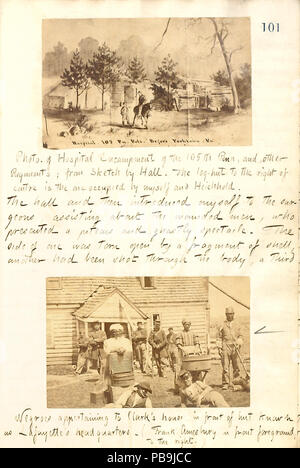 101
Hospital 105 Pa. Vols. Before Yorktown. Va.
Photo. of Hospital Encampment of the 105th Penn. and other
Regiments; from Sketch by Hall. The log-hut to the right of
centre is the one occupied by myself and
the hall and then introduced myself to the sur-
geons assisting about the wounded men, who
presented a piteous and ghastly spectacle. The
side of one was torn open by a fragment of shell,
another had been shot through the body, a third
Negroes appertaining to Clark's house in front of hut known
as Lafayette's headquarters. / Frank Amesbury in front foreground,
to the right.
alamy
Image ID: PB9JCC
www.alamy.com